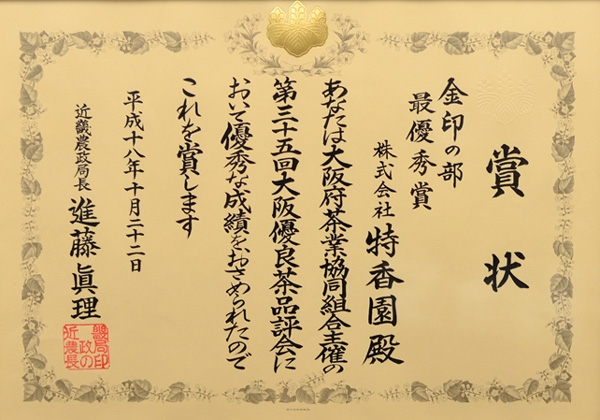 賞状
金印の部
最優秀賞
株式会社 特香園殿
あなたは大阪府茶業協同組合主催の
第三十五回大阪優良茶品評会に
おいて優秀な成績をおさめられたので
これを賞します
平成十八年十月二十二日
近畿農政局長 進藤眞理
近畿農政局長の印